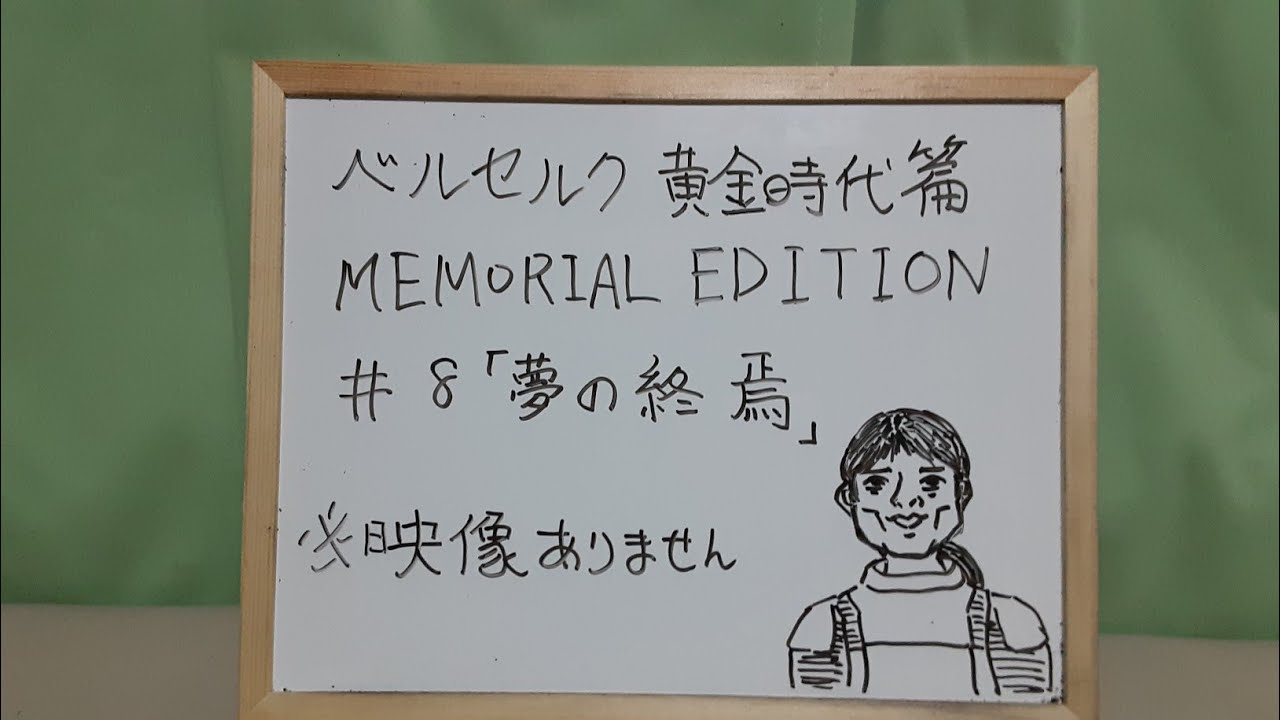 ベルセルク 黄金時代篇
MEMORIAL EDITION
#8「夢の終焉」
※映像ありません